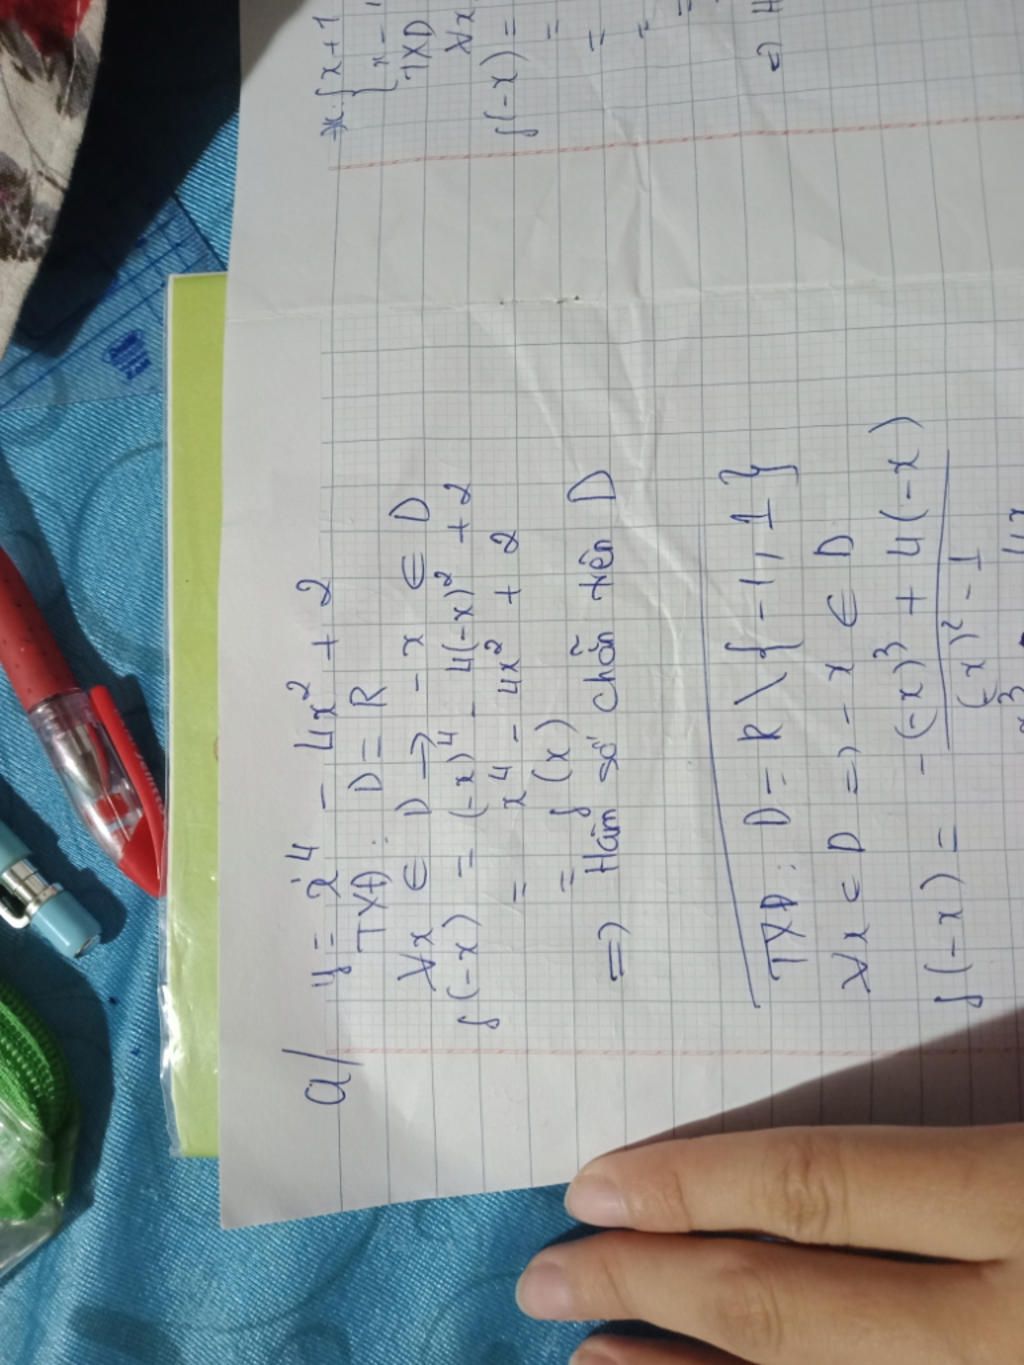 a/ y = x^4 - 4x^2 + 2
TXĐ: D = R
∀x ∈ D → -x ∈ D
f(-x) = (-x)^4 - 4(-x)^2 + 2
= x^4 - 4x^2 + 2
= f(x)
=> Hàm số chẵn trên D
TXĐ: D = R \ {-1, 1}
∀x ∈ D => -x ∈ D
f(-x) = -(-x)^3 + 4(-x)
(-x)^2 - 1
x^3 4x
{ x + 1
x -
TXD
∀x
f(-x) =
=
=
=
=
=> H